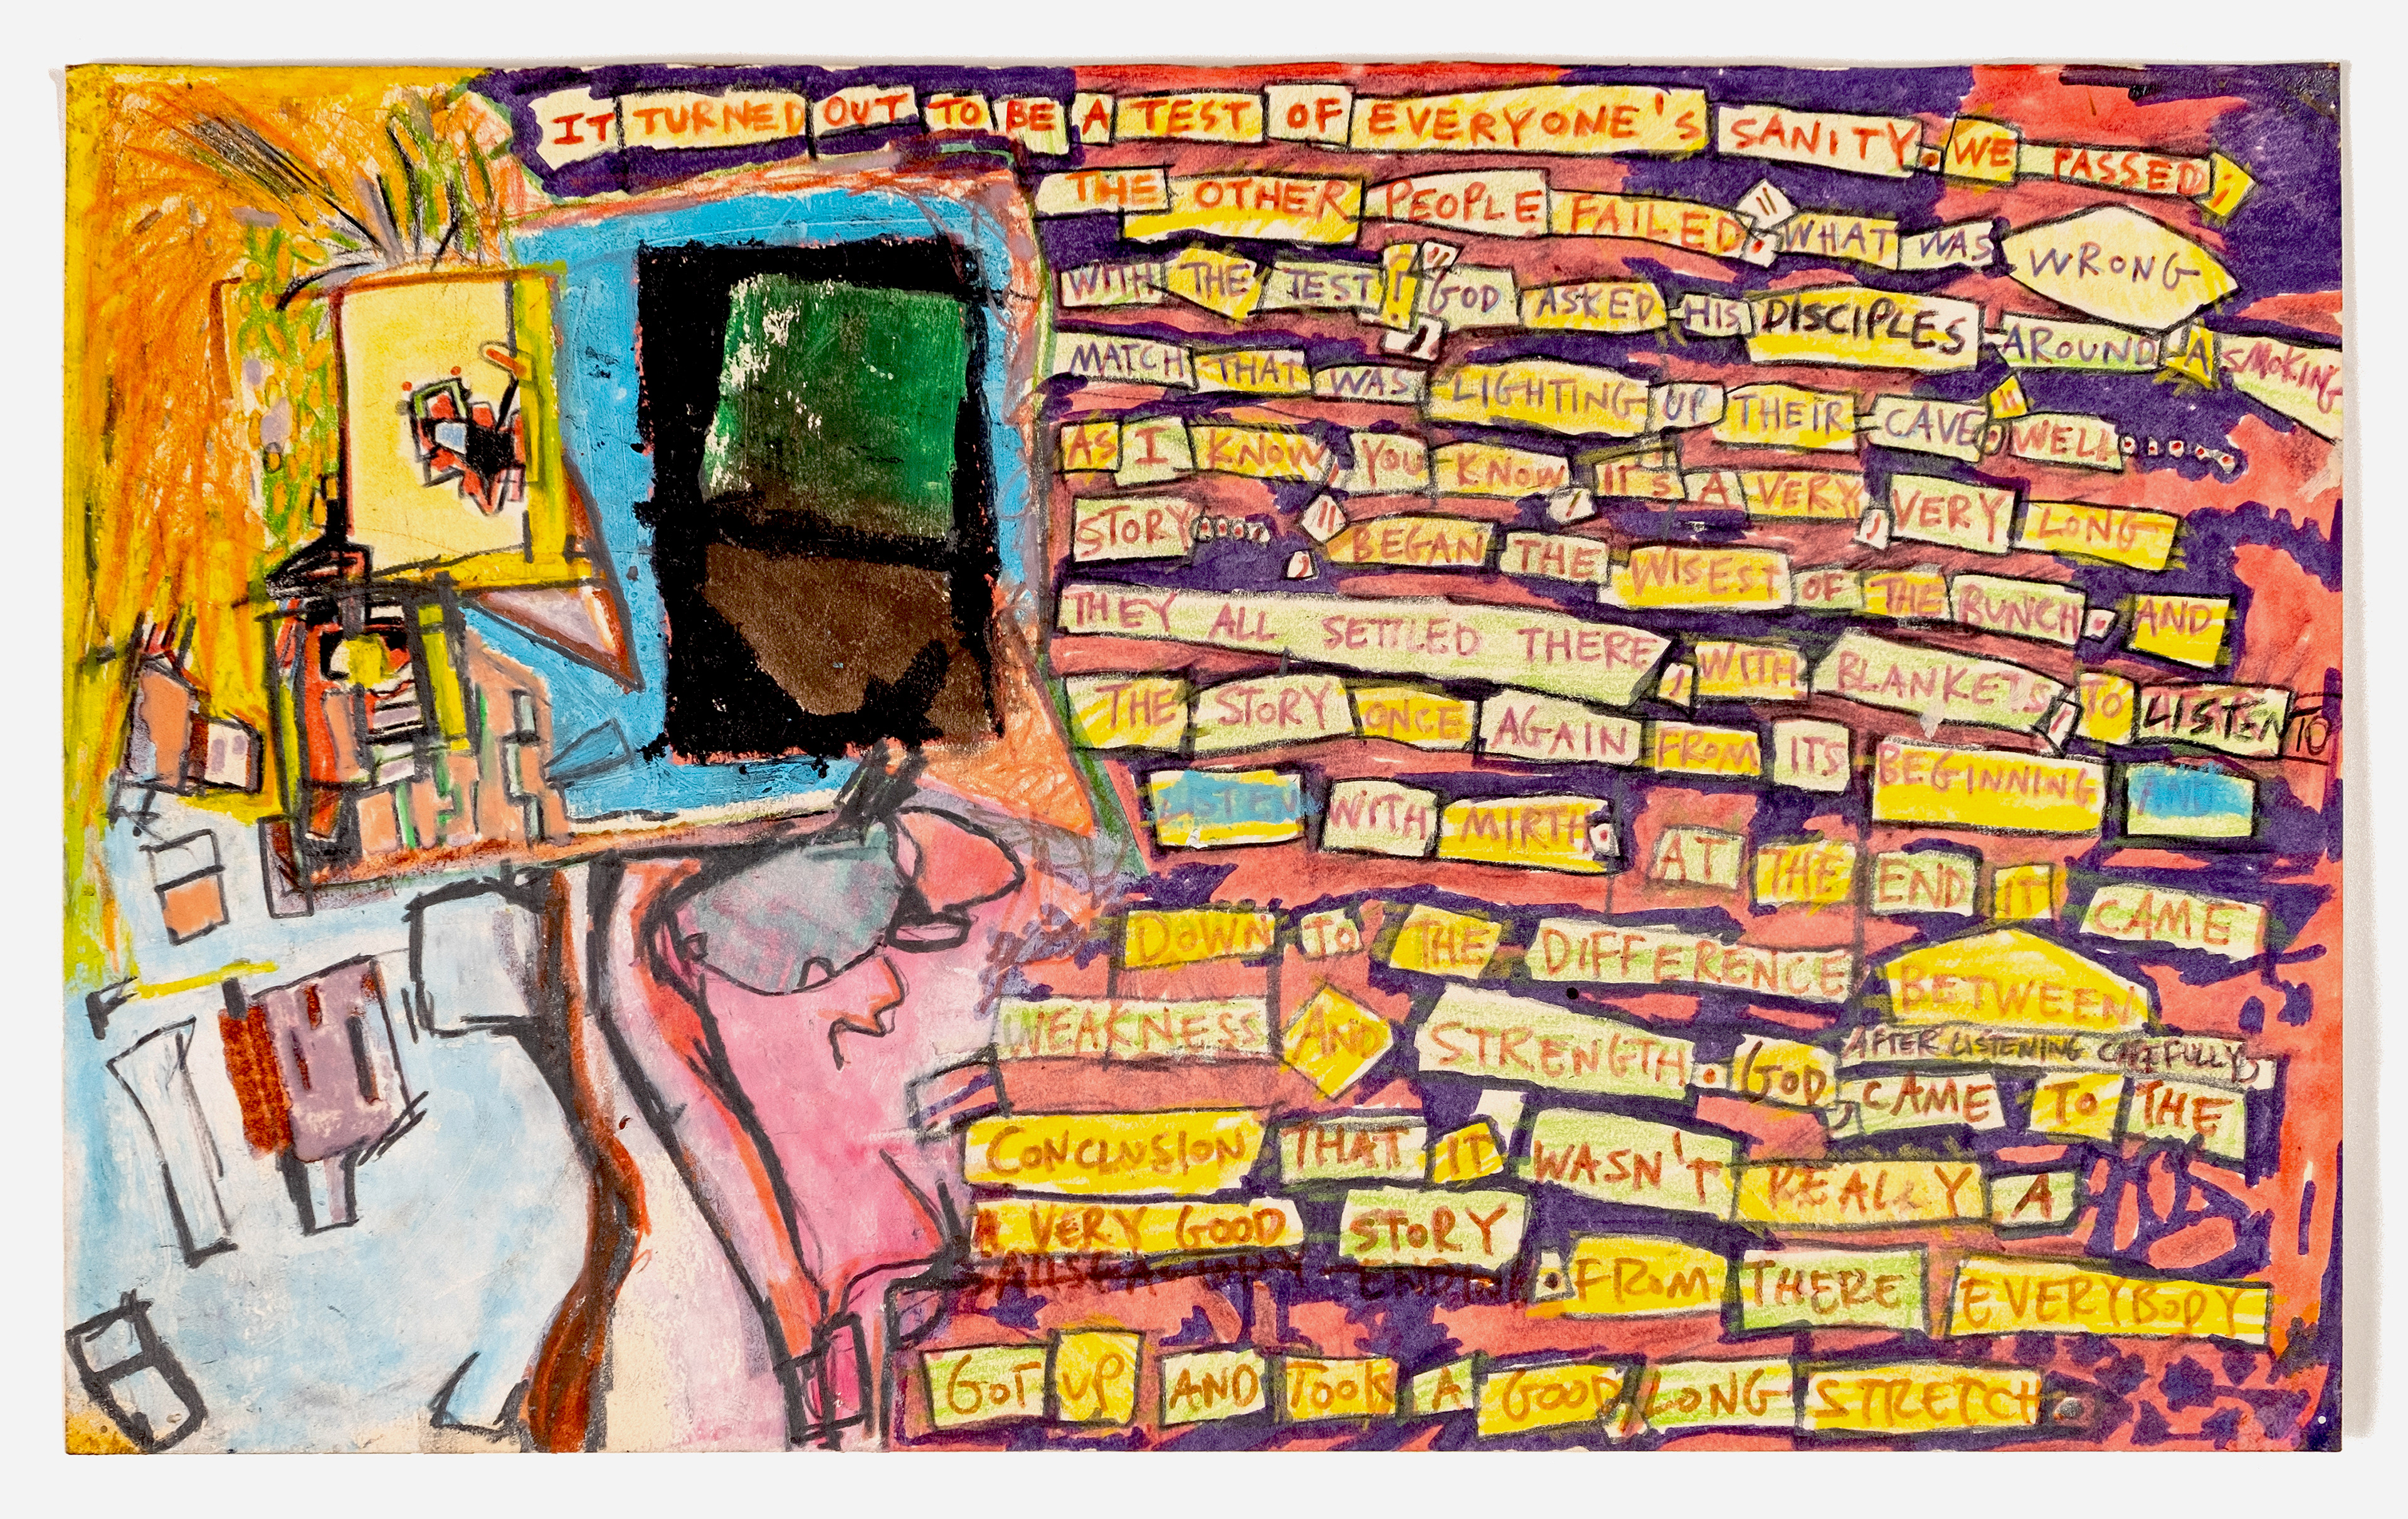 IT TURNED OUT TO BE A TEST OF EVERYONE'S SANITY. WE PASSED;
THE OTHER PEOPLE FAILED." WHAT WAS WRONG
WITH THE TEST?", GOD ASKED HIS DISCIPLES AROUND A SMOKING
MATCH THAT WAS LIGHTING UP THEIR CAVE. "WELL.....
AS I KNOW, YOU KNOW, IT'S A VERY, VERY LONG
STORY....", BEGAN THE WISEST OF THE BUNCH. AND
THEY ALL SETTLED THERE, WITH BLANKETS, TO LISTEN TO
THE STORY ONCE AGAIN FROM ITS BEGINNING AND
LISTEN WITH MIRTH. AT THE END IT CAME
DOWN TO THE DIFFERENCE BETWEEN
WEAKNESS AND STRENGTH. GOD, AFTER LISTENING CAREFULLY, CAME TO THE
CONCLUSION THAT IT WASN'T REALLY A
A VERY GOOD STORY
. FROM THERE EVERYBODY
GOT UP AND TOOK A GOOD, LONG STRETCH.